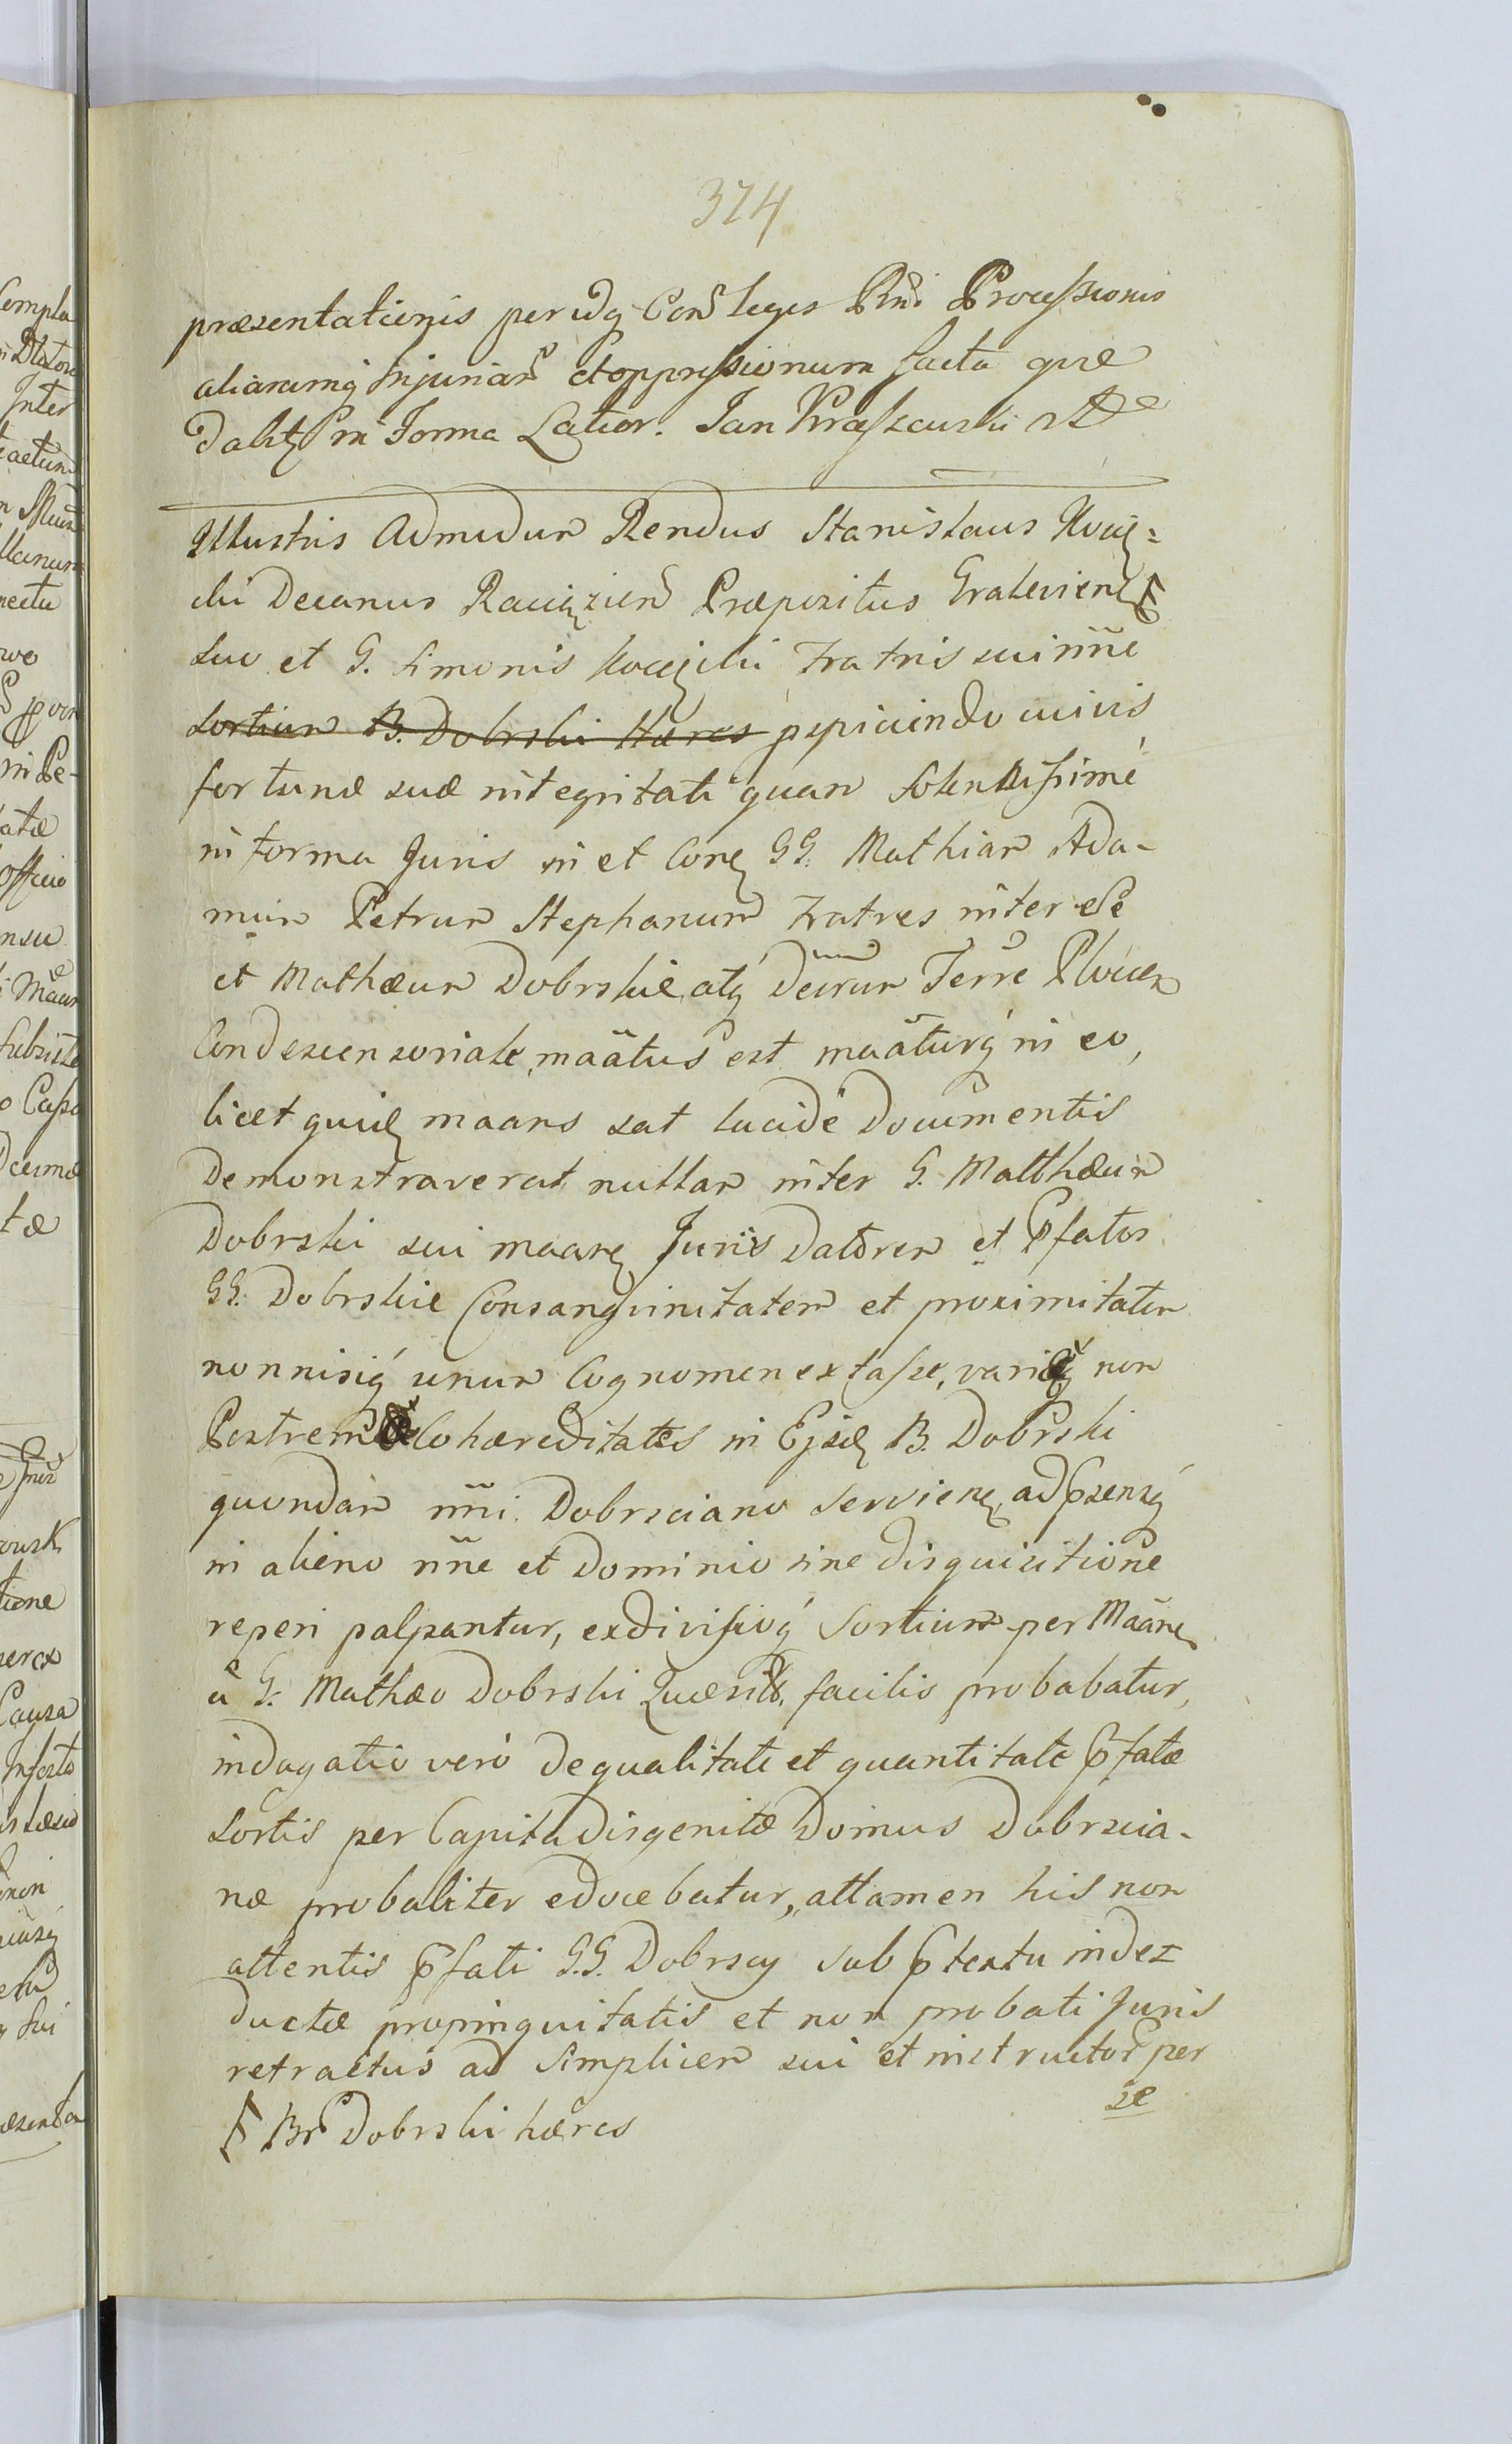 374
præsentationis per idq Con leges Rndi Processionis
aliarumq Injuriar et oppressionum facta quæ
Dabitz in Forma Latior. Jan Kraszewski
Illustris Admodum Rendus Stanislaus Kocię=
cki Decanus Raciązien Præpositus Gralevien §
suo et G. Simonis Kocięcki Fratris sui ñne
sortium B. Dobrski Hæres pspiciendo cuivis
fortunæ suæ integritati quam solennissime
in forma Juris in et Conę GG. Mathiam Ada-
mum Petrum Stephanum Fratres inter se
et Mathæum Dobrskie, atq Decrum Terrē Plocen
Condescensoriale, maātus est maāturq in eo,
licet quidę maans sat lucide Documentis
Demonstraverat nullam inter G. Matthæum
Dobrski sui maanę Juris Datorem et Pfatos
GG. Dobrskie Consangvinitatem et proximitatem
non nisiq unum Cognomen extasse, variæq non
Postremæ Cohæreditates in Ejsdę B. Dobrski
quondam ñni Dobrsciano servienę, ad psensq
in alieno ñne et Dominio sine disquisitione
reperi palpantur, ex divisivoq Sortium per Maānę
a G. Mathæo Dobrski Quæsit, facilis probabatur,
indagatio vero de qualitate et quantitate Pfatæ
Sortis per Capita disgenitæ Domus Dobrscia-
næ probaliter edocebatur, attamen his non
attentis Pfati G.G. Dobrscy sub Ptextu inde=
ductæ propinquitatis et non probati Juris
retractus ad Simplicem sui et instructor per
se
§ Br Dobrski hæres